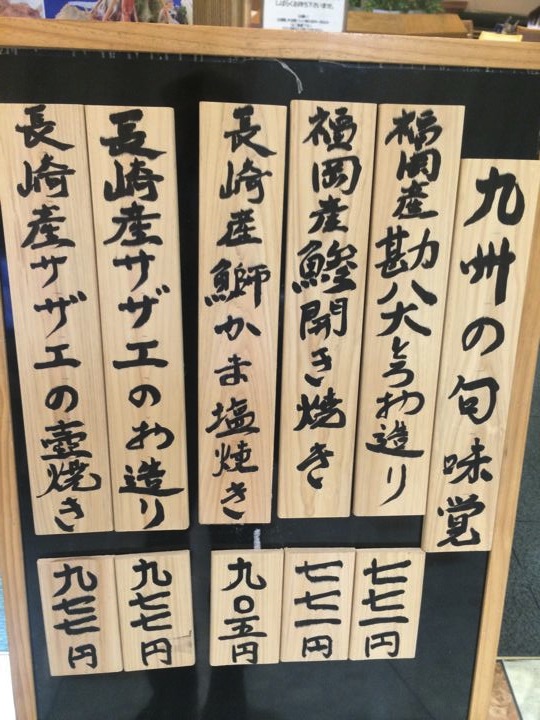 九州の旬味覚
福岡産勘八大とろお造り
七七一円
福岡産鰹開き焼き
七七一円
長崎産鰤かま塩焼き
九〇五円
長崎産サザエのお造り
九七七円
長崎産サザエの壺焼き
九七七円